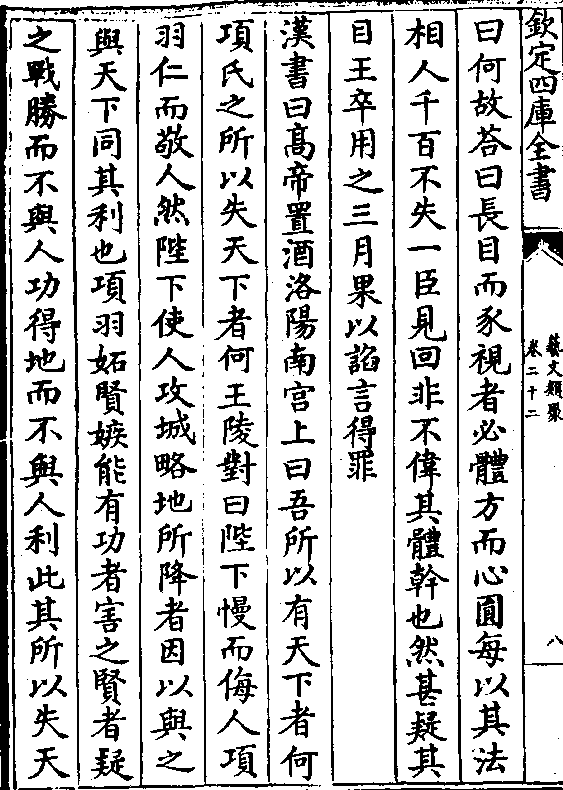 欽定四庫全書
藝文類聚
卷二十二
八
曰何故荅曰長目而豕視者必體方而心圓每以其法
相人千百不失一臣見回非不偉其體幹也然甚疑其
目王卒用之三月果以諂言得罪
漢書曰髙帝置酒洛陽南宫上曰吾所以有天下者何
項氏之所以失天下者何王陵對曰陛下慢而侮人項
羽仁而敬人然陛下使人攻城略地所降者因以與之
與天下同其利也項羽妬賢嫉能有功者害之賢者疑
之戰勝而不與人功得地而不與人利此其所以失天